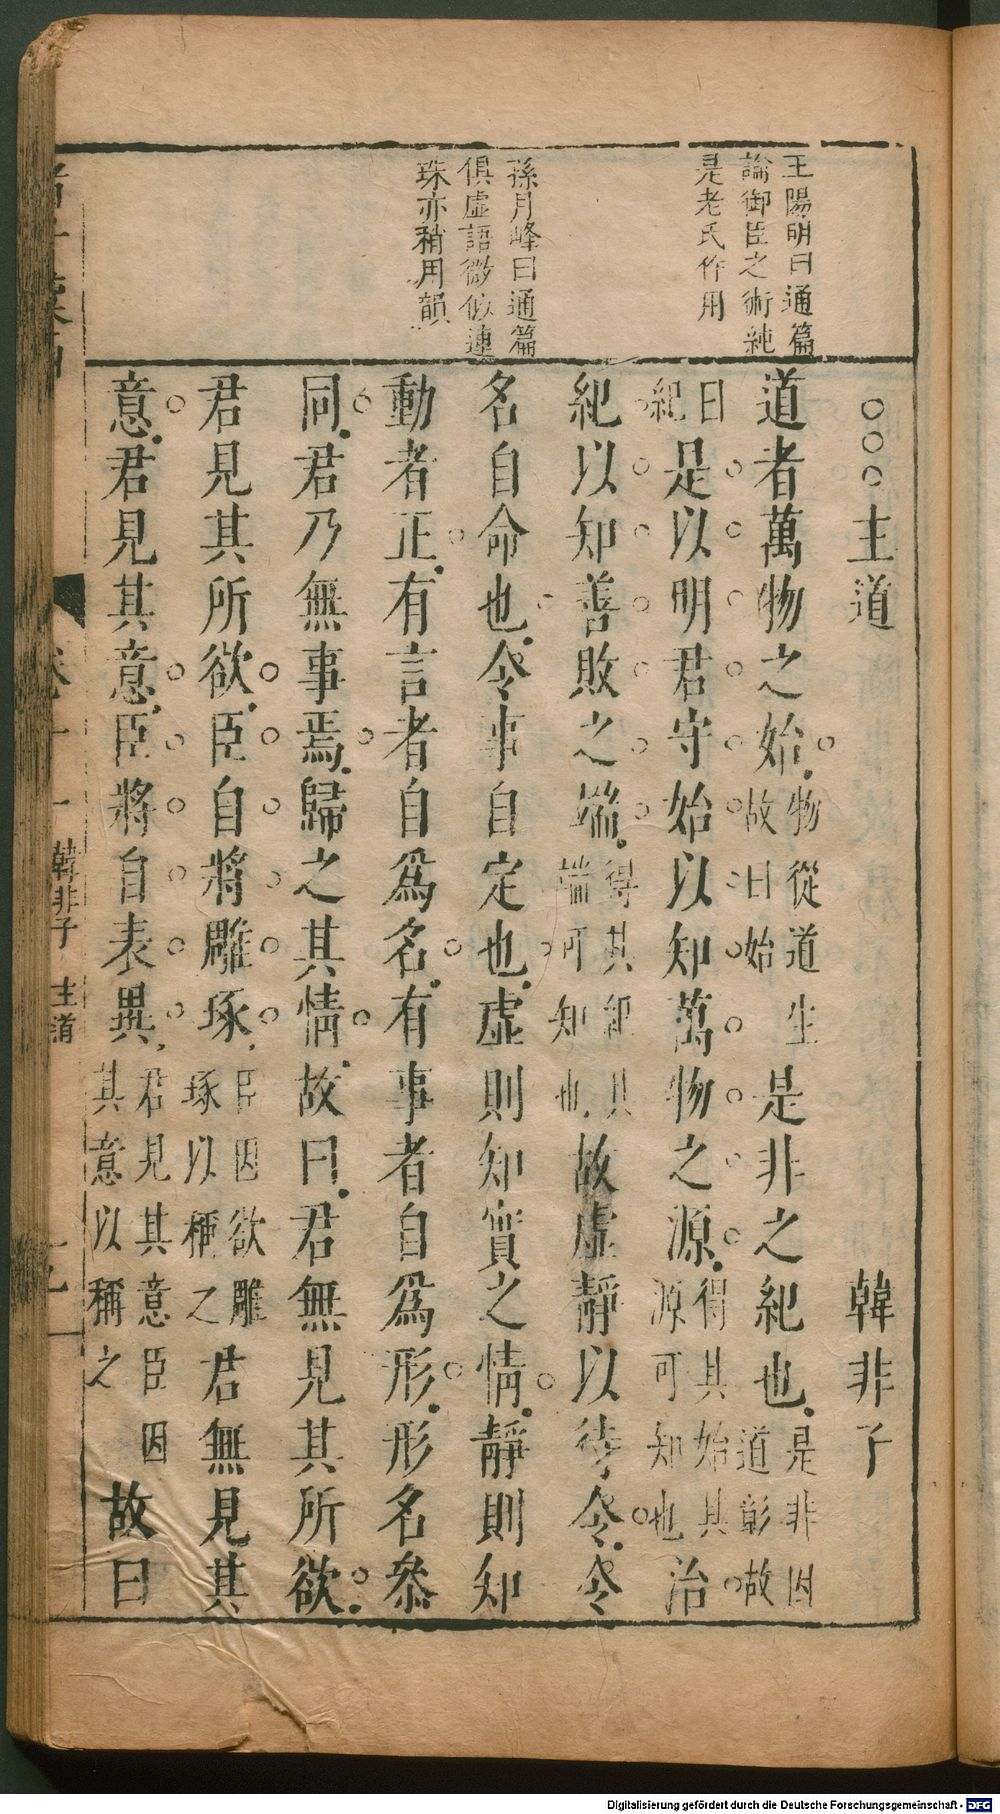 王陽明曰通篇
論御臣之術純
是老氏作用
孫月峰曰通篇
俱虛語微似連
珠亦稍用韻
○○○主道 韓非子
道者萬物之始物從道生故曰始是非之紀也是非因道彰故
曰紀是以明君守始以知萬物之源得其始其源可知也治
紀以知善敗之端得其紀其端可知也故虛靜以待令令
名自命也令事自定也虛則知實之情靜則知
動者正有言者自爲名有事者自爲形形名叅
同君乃無事焉歸之其情故曰君無見其所欲
君見其所欲臣自將雕琢臣因欲雕琢以稱之君無見其
意君見其意臣將自表異君見其意臣因其意以稱之故曰
韓非子 主道
Digitalisierung gefördert durch die Deutsche Forschungsgemeinschaft - DFG